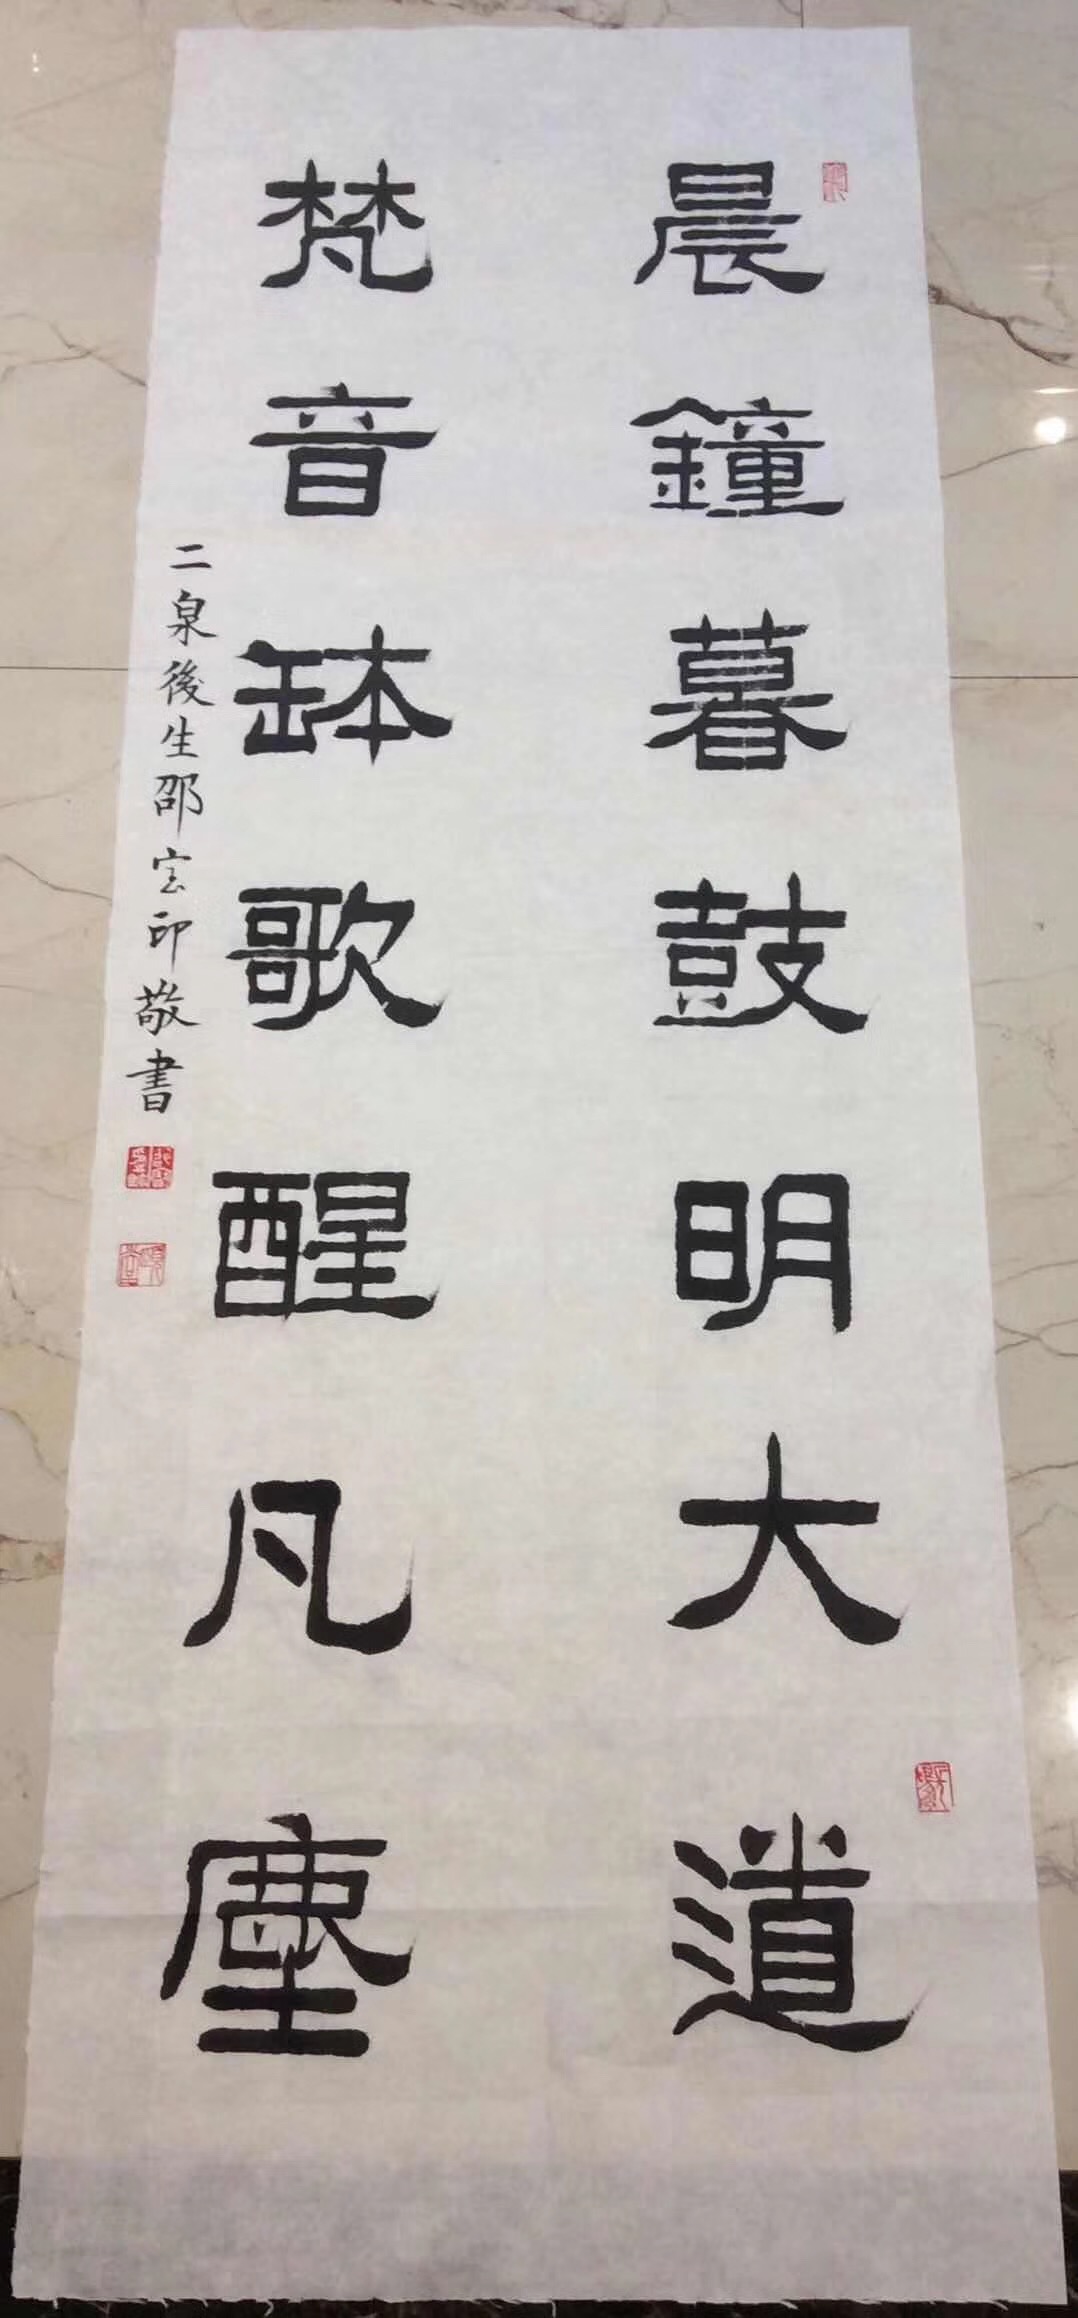 晨鐘暮鼓明大道
梵音缽歌醒凡塵
二泉後生邵宏印敬書